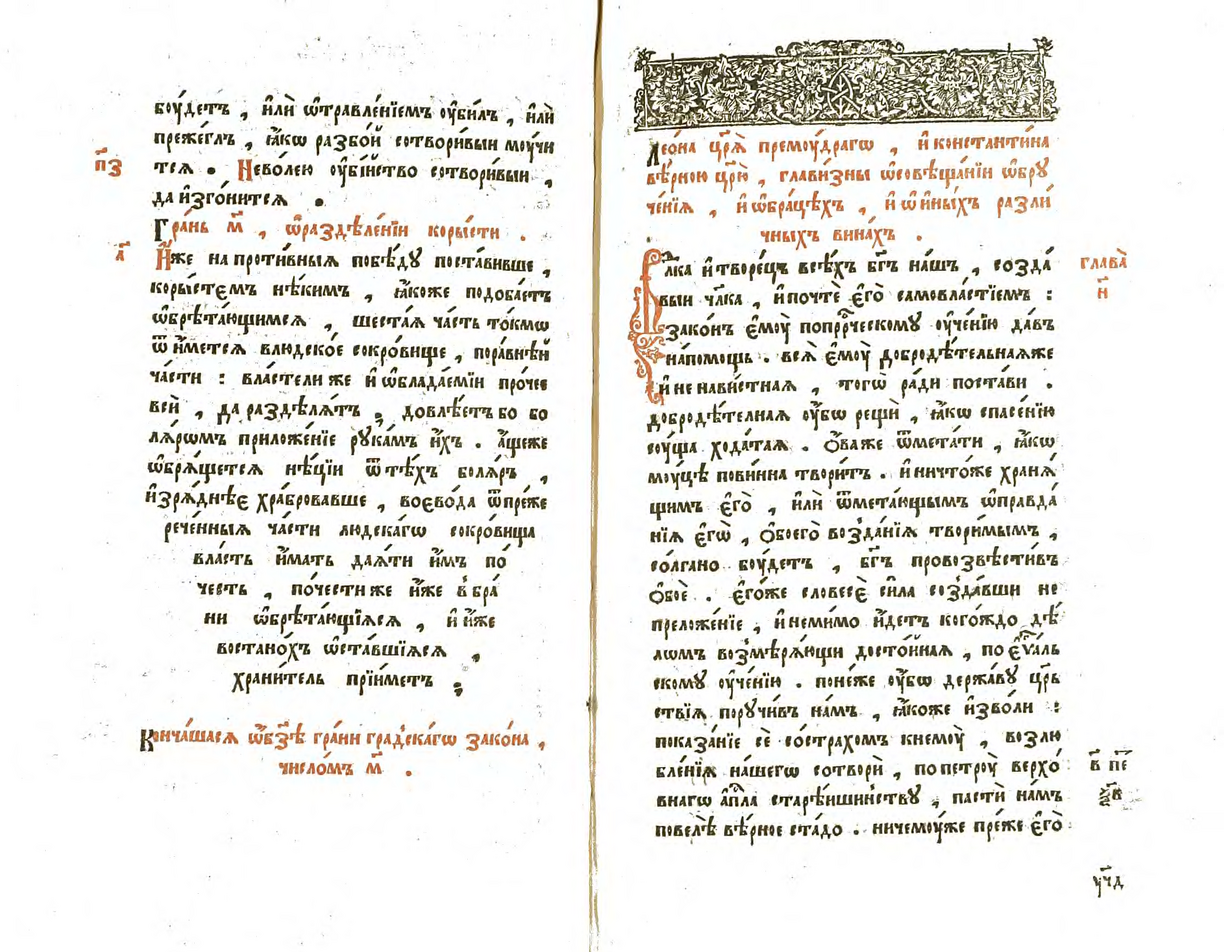 боу́детъ , и҆лѝ ѿтравле́нїемъ оу҆би́лъ , и҆лѝ
преже́глъ , ꙗ҆́кѡ разбо́й сотвори́выи моу́чи
п҃з
тсѧ . Нево́лею оу҆бі́йство сотвори́выи ,
да и҆зго́нитсѧ .
Гра́нь м҃ , ѡ҆раздѣле́нїи коры́сти .
а҃
И҆́же на проти́вныѧ побѣ́ду поста́вивше ,
коры́стемъ нѣ́кимъ , ꙗ҆́коже подоба́етъ
ѡ҆брѣта́ющимсѧ , шеста́ѧ ча́сть то́кмѡ
ѿ и҆́метсѧ влюдско́е сокро́вище , пора́внѣй
ча́сти : власте́ли же и҆ ѡ҆блада́емїи про́чее
всѝ , да раздѣлѧ́тъ , довлѣ́етъ бо бо
лѧ́рѡмъ приложе́нїе рука́мъ и҆́хъ . а҆́щеже
ѡ҆брѧ́щетсѧ нѣ́цїи ѿ тѣ́хъ болѧ́ръ ,
и҆зрѧ́днѣє хра́бровавше , воево́да ѿпре́же
рече́нныѧ ча́сти людска́гѡ сокро́вища
вла́сть и҆́мать даѧ́ти и҆̀мъ по́
честь , по́чести же и҆́же в̾ бра́
ни ѡ҆брѣта́ющїѧсѧ , и҆ и҆́же
востано́хъ ѡ҆ста́вшїѧсѧ ,
храни́тель прїи́метъ .
Конча́шасѧ ѡ҆бзѣ гра́ни гра́дскагѡ зако́на ,
число́мъ м҃ .
Лео́на цр҃ѧ̀ премоу́драгѡ , и҆ константи́на
вѣ́рною цр҃ю̀ , глави́зны ѡ҆совѣща́нїи ѡ҆бру
че́нїѧ , и҆ ѡ҆бра́цѣхъ , и҆ ѡ҆ и҆ны́хъ разли́
чныхъ вина́хъ .
глава̀
н҃
Влⷣка и҆ творе́цъ всѣ́хъ бг҃ъ на́шъ , созда́
выи чл҃ка , и҆ почтѐ є҆го̀ самовла́стїемъ :
зако́нъ є҆моу̀ попрⷪ҇ро́ческому оу҆че́нїю да́въ
на́помощь . всѧ̀ є҆моу̀ добродѣ́тельнаѧже
и҆ не нави́стнаѧ , тогѡ̀ ра́ди поста́ви .
добродѣ́телнаѧ оу҆́бѡ рещѝ , ꙗ҆́кѡ спасе́нїю
соу́ща хода́таѧ . Ѻ҆́важе ѿмета́ти , ꙗ҆́кѡ
моу́цѣ пови́нна твори́тъ . и҆ ничто́же хранѧ́
щимъ є҆гѡ̀ , и҆лѝ ѿмета́ющымъ ѡ҆правда́
нїѧ є҆гѡ̀ , ѻ҆́боего возда́нїѧ твори́мымъ ,
со́лгано боу́детъ , бг҃ъ провозвѣсти́въ
ѻ҆́боѐ . є҆го́же словесѐ си́ла созда́вши не
преложе́нїе , и҆ неми́мо и҆́детъ кого́ждо дѣ́
ломъ возмѣ́рѧющи досто́йнаѧ , по є҆ѵⷢ҇аль
скому оу҆че́нїю . поне́же оу҆́бѡ держа́ву цр҃ь
ствїѧ пору́чивъ на́мъ , ꙗ҆́коже и҆зво́ли :
показа́нїе сѐ со́страхомъ кнемоу̀ , возлю
бле́нїѧ на́шегѡ сотворѝ , по петроу̀ верхо́
в҃ пе
внагѡ а҆пⷭ҇ла старѣ́ишинству , пастѝ на́мъ
повелѣ̀ вѣ́рное ста́до . ничемоу́же пре́же є҆го̀
уч҃д